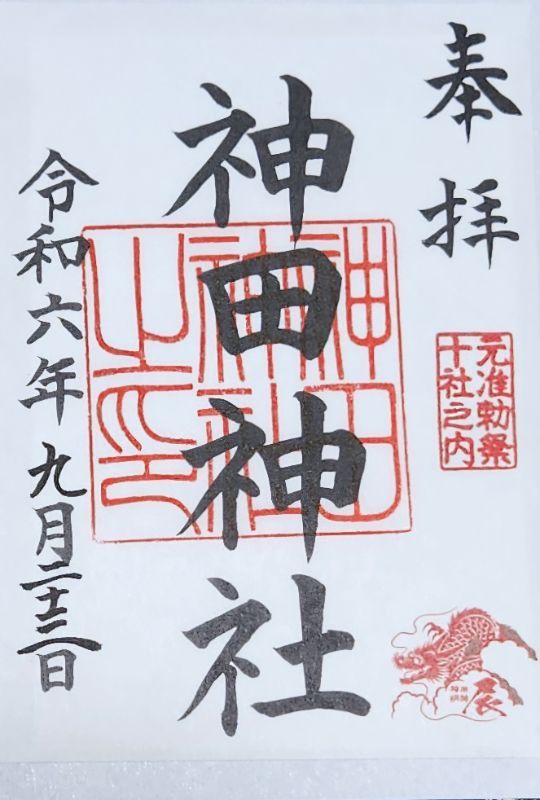 奉拝
元准勅祭
十社之内
辰
神田神社
神田神社之印
令和六年九月二十三日